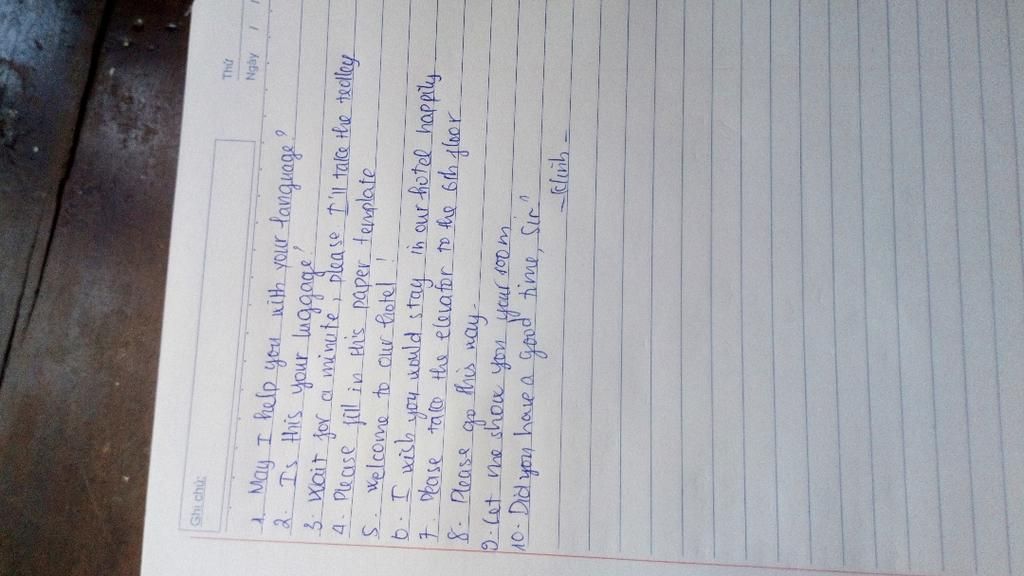 Ghi chú:
Thứ
Ngày / /
1. May I help you with your language?
2. Is this your luggage?
3. Wait for a minute, please I'll take the
4. Please fill in this paper template
5. welcome to our hotel!
6. I wish you would stay in our hotel happily
7. Please take the elevator to the 6th floor
8. Please go this way.
9. Let me show you your room
10. Did you have a good time, Sir?